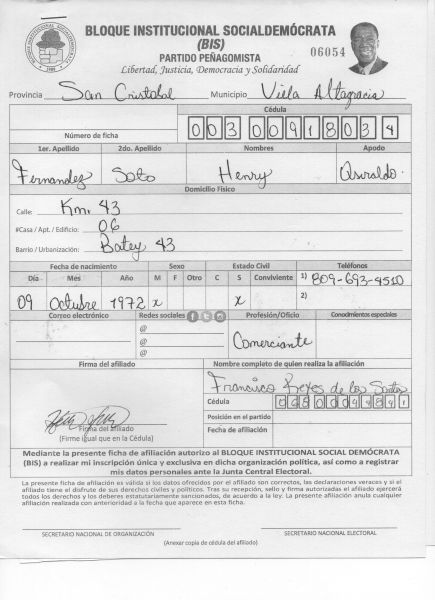 BLOQUE INSTITUCIONAL SOCIALDEMÓCRATA
(BIS)
PARTIDO PEÑAGOMISTA
Libertad, Justicia, Democracia y Solidaridad
06054
Provincia San Cristobal Municipio Villa Altagracia
Cédula
Número de ficha 003 0091803 4
1er. Apellido 2do. Apellido Nombres Apodo
Fernandez Soto Henry Osvaldo.
Domicilio Físico
Calle: Km. 43
#Casa / Apt. / Edificio: 06
Barrio / Urbanización: Batey 43
Fecha de nacimiento Sexo Estado Civil Teléfonos
Día Mes Año M F Otro C S Conviviente 1) 809-693-4510
09 Octubre 1972 x x 2)
Correo electrónico Redes sociales Profesión/Oficio Conocimientos especiales
@
@ Comerciante
@
Firma del afiliado Nombre completo de quien realiza la afiliación
Francisco Reyes de los Santos
Cédula
Posición en el partido
Firma del afiliado Fecha de afiliación
(Firme igual que en la Cédula)
Mediante la presente ficha de afiliación autorizo al BLOQUE INSTITUCIONAL SOCIAL DEMÓCRATA
(BIS) a realizar mi inscripción única y exclusiva en dicha organización política, así como a registrar
mis datos personales ante la Junta Central Electoral.
La presente ficha de afiliación es válida si los datos ofrecidos por el afiliado son correctos, las declaraciones veraces y si el
afiliado tiene el disfrute de sus derechos civiles y políticos. Tras su recepción, sello y firma autorizadas el afiliado ejercerá
todos los derechos y los deberes estatutariamente sancionados, de acuerdo a la ley. La presente afiliación anula cualquier
afiliación realizada con anterioridad a la fecha que aparece en esta ficha.
SECRETARIO NACIONAL DE ORGANIZACIÓN SECRETARIO NACIONAL ELECTORAL
(Anexar copia de cédula del afiliado)